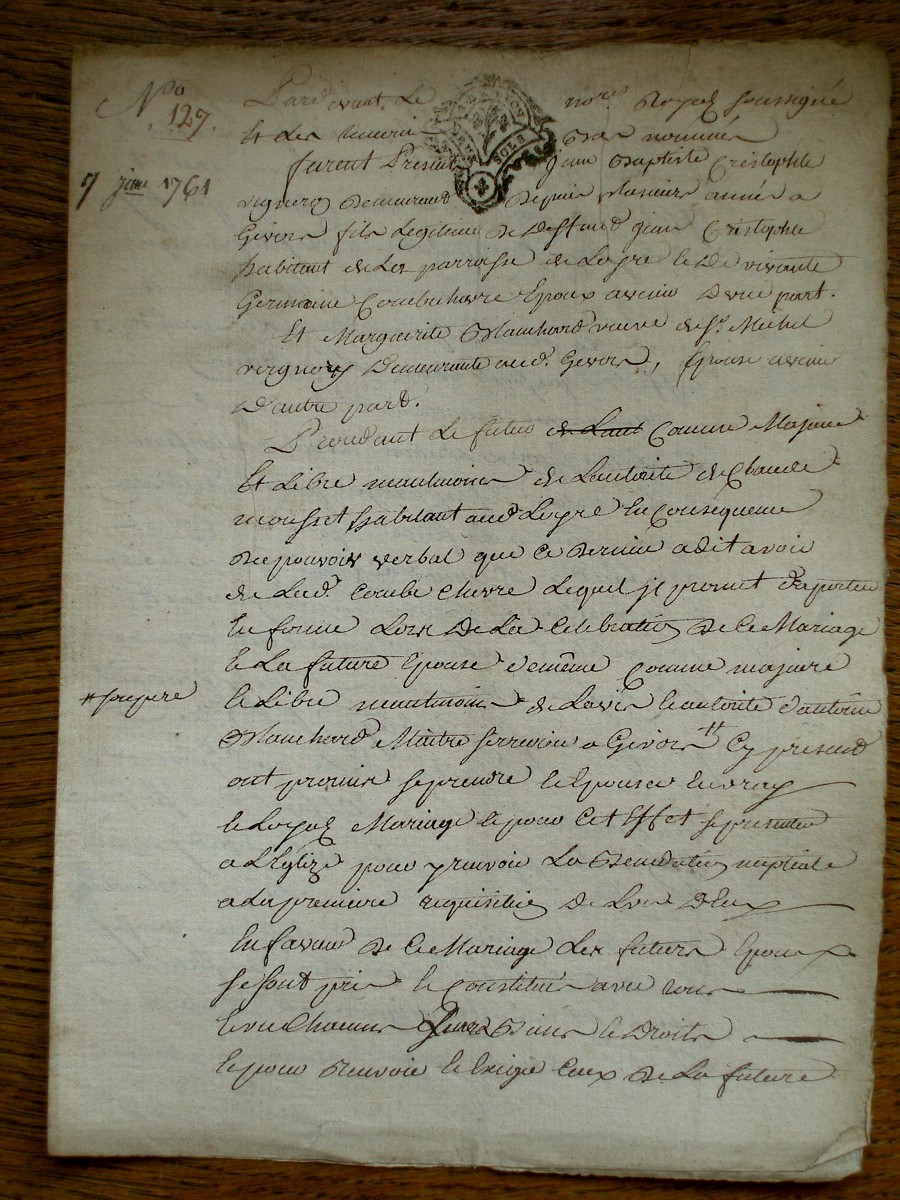 No 127.
7 juin 1761
Pardevant Le no.re Royal soussigné
Et Les temoins Bas nommés
furent Presents jean Baptiste Cristophle
vigneron Demeurant Depuis plusieurs années a
Givors fils Legitime De Deffunt jean Cristophle
habitant de La parroisse de Loyre et De vivante
Germaine Combechevre Epoux avenir D'une part.
Et Marguerite Blanchard veuve de Sr. Michel
Demeurante aud. Givors, Epouse avenir
D'autre part.
Procedant Le futur Comme Majeur
Et Libre neantmoins de L'autorité de Claude
mousset habitant aud. Loyre En Consequence
Du pouvoir verbal que Ce Dernier a dit avoir
de Lad. Combe Chevre Lequel jl promet d'aporter
En forme Lors De La Celebration De Ce Mariage
Et La future Epouse de même Comme majeure
Et Libre neantmoins de L'avis Et autorité d'antoine
# son pere
Blanchard Maître serrurier a Givors # Cy present
ont promis se prendre Et Epouser En vray
Et Loyal Mariage Et pour Cet Effet se presenter
a L'Eglize pour y recevoir La Benediction nuptiale
a La premiere requisition De L'un D'Eux
En faveur De Ce Mariage Les futurs Epoux
se sont pris Et Constitués avec tous
Et un Chacuns Leurs Biens Et Droits
Et pour recevoir Et Exiger Ceux De La future